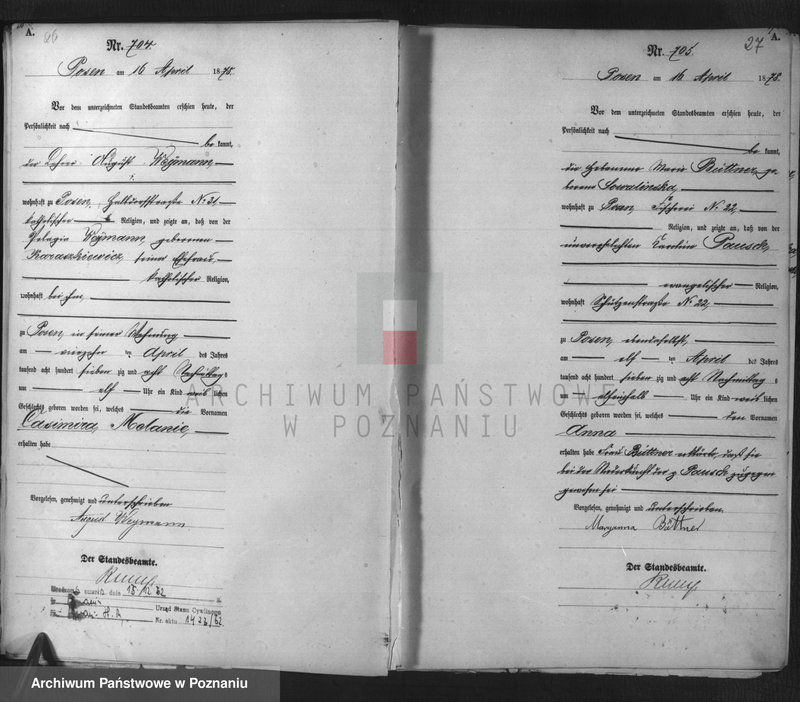 A.
26
Nr. 704.
Posen am 16 April 1878.
Vor dem unterzeichneten Standesbeamten erschien heute, der
Persönlichkeit nach
be kannt,
der Lehrer August Weymann,
wohnhaft zu Posen, Halbdorfstraße No 31.
katholischer Religion, und zeigte an, daß von der
Pelagia Weymann geborenen
Karaszkiewicz, seiner Ehefrau,
katholischer Religion,
wohnhaft bei ihm,
zu Posen, in seiner Wohnung
am vierzehn ten April des Jahres
tausend acht hundert sieben zig und acht Nachmittag s
um elf Uhr ein Kind weib lichen
Geschlechts geboren worden sei, welches die Vornamen
Casimira, Melanie,
erhalten habe
Vorgelesen, genehmigt und unterschrieben
August Weymann
Der Standesbeamte.
zmarł dnia 18/12/62
Urząd Stanu Cywilnego
Nr. aktu 1423/62
A.
27
Nr. 705.
Posen am 16 April 1878.
Vor dem unterzeichneten Standesbeamten erschien heute, der
Persönlichkeit nach
be kannt,
die Hebamme Marie Büttner, ge
borene Sowalinska,
wohnhaft zu Posen Fischerei No 22,
Religion, und zeigte an, daß von der
unverehelichten Karoline Pausch,
evangelischer Religion,
wohnhaft Schützenstraße No 22,
zu Posen, ebendaselbst,
am elf ten April des Jahres
tausend acht hundert sieben zig und acht Nachmittag s
um elfeinhalb Uhr ein Kind weib lichen
Geschlechts geboren worden sei, welches den Vornamen
Anna
erhalten habe Frau Büttner erklärte, daß sie
bei der Niederkunft der p. Pausch zugegen
gewesen sei
Vorgelesen, genehmigt und unterschrieben.
Maryanna Büttner
Der Standesbeamte.
ARCHIWUM PAŃSTWOWE
W POZNANIU
Archiwum Państwowe w Poznaniu